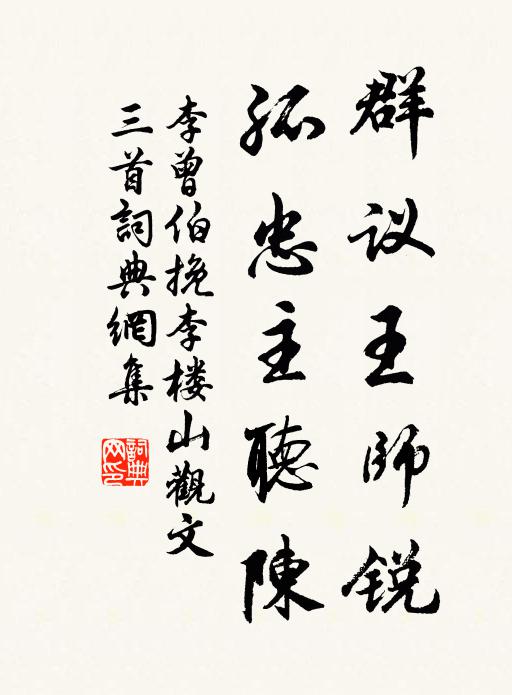 群议王师锐
孤忠主聽陳
李曾伯挽李楼山觀文
三首詞典網集
詞典网印